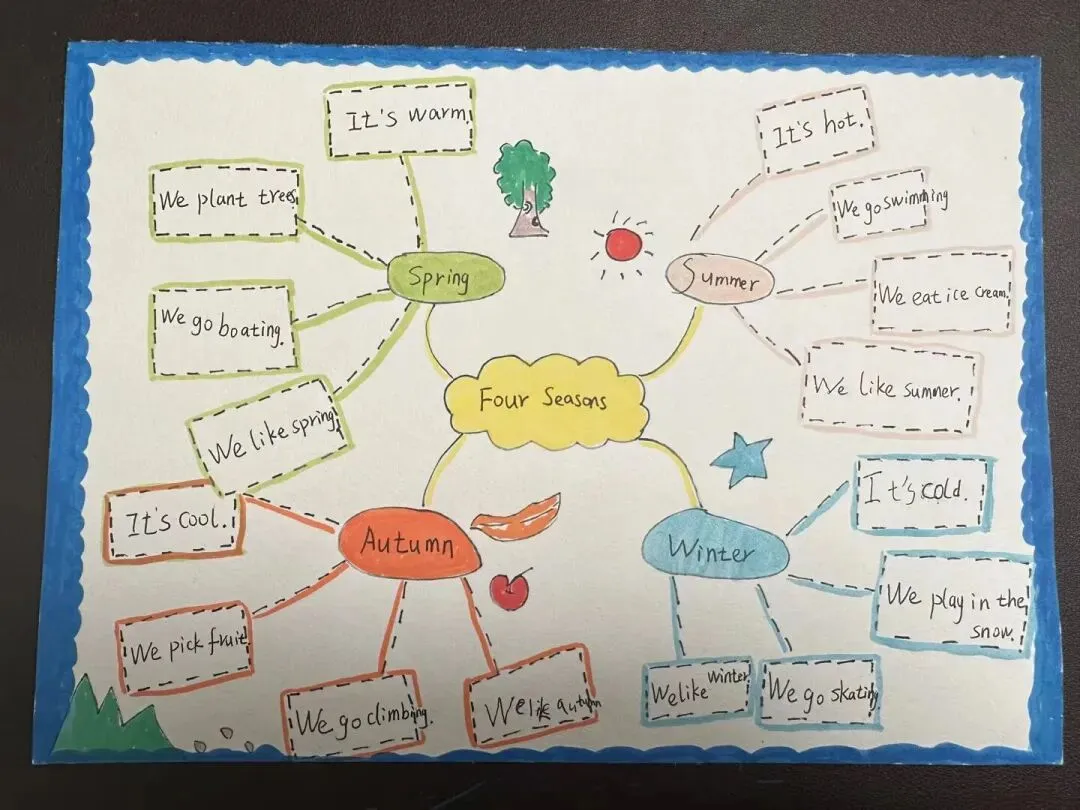 Four Seasons
Spring
It's warm.
We plant trees
We go boating.
We like spring.
Summer
It's hot.
We go swimming
We eat ice cream.
We like summer.
Autumn
It's cool.
We pick fruit
We go climbing.
We like autumn
Winter
It's cold.
We play in the
snow.
We go skating
We like winter